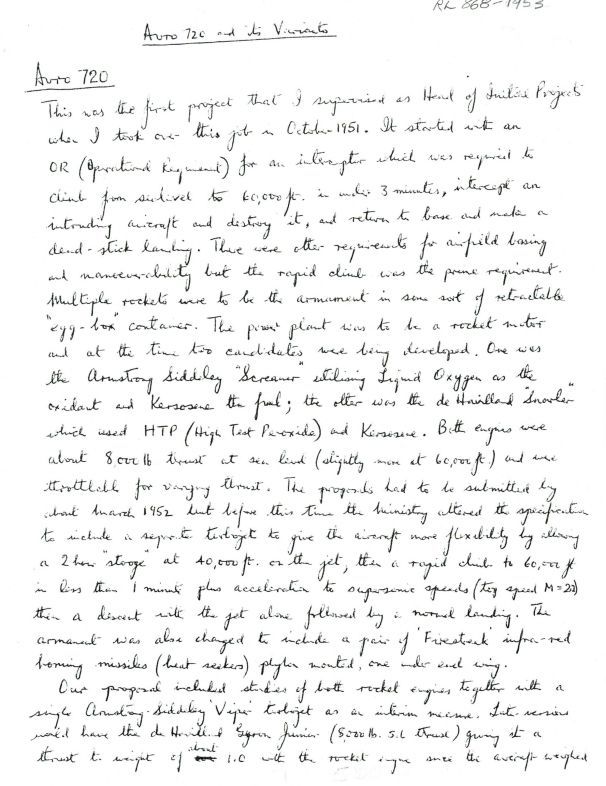 RL 86B-1953
Avro 720 and its Variants
Avro 720
This was the first project that I supervised as Head of Initial Projects
when I took over this job in October 1951. It started with an
OR (Operational Requirement) for an interceptor which was required to
climb from sea level to 60,000 ft. in under 3 minutes, intercept an
intruding aircraft and destroy it, and return to base and make a
dead-stick landing. There were other requirements for airfield basing
and manoeuverability but the rapid climb was the prime requirement.
Multiple rockets were to be the armament in some sort of retractable
"egg-box" container. The power plant was to be a rocket motor
and at the time two candidates were being developed. One was
the Armstrong Siddeley "Screamer" utilising Liquid Oxygen as the
oxidant and Kerosene the fuel; the other was the de Havilland Snarler"
which used HTP (High Test Peroxide) and Kerosene. Both engines were
about 8,000 lb thrust at sea level (slightly more at 60,000 ft) and were
throttlable for varying thrust. The proposals had to be submitted by
about March 1952 but before this time the Ministry altered the specification
to include a separate turbojet to give the aircraft more flexibility by allowing
a 2 hour "stooge" at 40,000 ft. on the jet, then a rapid climb to 60,000 ft
in less than 1 minute plus acceleration to supersonic speeds (top speed M=2.0)
then a descent with the jet alone followed by a normal landing. The
armament was also changed to include a pair of 'Firestreak' infra-red
homing missiles (heat seekers) pylon mounted, one under each wing.
Our proposal included studies of both rocket engines together with a
single Armstrong-Siddeley 'Viper' turbojet as an interim measure. Later versions
would have the de Havilland Gyron Junior (5,000 lb. S.L thrust) giving it a
thrust to weight of about 1.0 with the rocket engine since the aircraft weighed